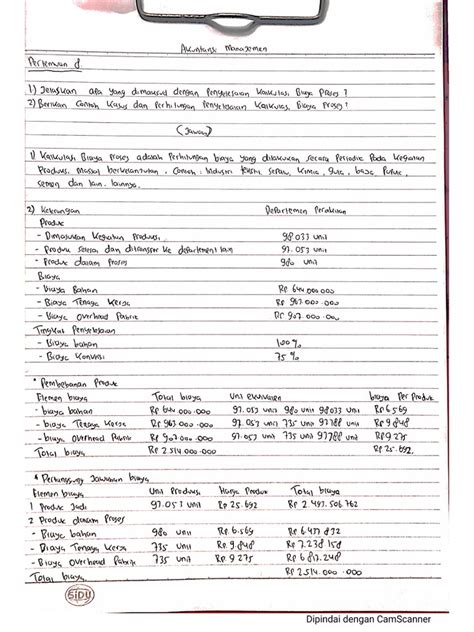 Akuntansi Manajemen
Pertemuan 8.
1) Jelaskan apa yang dimaksud dengan Penyelesaian Kalkulasi Biaya Proses ?
2) Berikan Contoh Kasus dan Perhitungan Penyelesaian Kalkulasi Biaya Proses ?
(Jawab)
1) Kalkulasi Biaya Proses adalah Perhitungan biaya yang dilakukan secara Periodic Pada Kegiatan
Produksi Massal berkelanjutan. Contoh : Industri Kimia, gula, baja,
semen dan lain. lainnya.
2) Keterangan Departemen Perakitan
Produk
- Dimasukan Kegiatan Produksi 98.033 unit
- Produk selesai dan ditransfer ke departement lain 97.053 unit
- Produk dalam Proses 980 unit
Biaya
- Biaya Bahan Rp 644.000.000
- Biaya Tenaga Kerja Rp 963.000.000
- Biaya Overhead Pabrik Rp 907.000.000
Tingkat Penyelesaian
- Biaya bahan 100%
- Biaya Konversi 75%
* Pembebanan Produk
Elemen biaya Total biaya Unit ekuivalen biaya Per Produk
- biaya bahan Rp 644.000.000 97.053 unit 980 unit 98033 unit Rp 6.569
- biaya Tenaga Kerja Rp 963.000.000 97.053 unit 735 unit 97788 unit Rp 9.848
- biaya Overhead Pabrik Rp 907.000.000 97.053 unit 735 unit 97788 unit Rp 9.275
Total biaya Rp 2.514.000.000 Rp 25.692.
* Pertanggung Jawaban biaya
Elemen biaya Unit Produksi Harga Produk Total biaya
1 Produk Jadi 97.053 unit Rp 25.692 Rp 2.493.506.762
2 Produk dalam Proses
- Biaya bahan 980 unit Rp 6.569 Rp 6.437.832
- Biaya Tenaga Kerja 735 unit Rp 9.848 Rp 7.238.158
- Biaya Overhead Pabrik 735 unit Rp 9.275 Rp 6.817.248
Total biaya Rp 2.514.000.000
SIDU
Dipindai dengan CamScanner